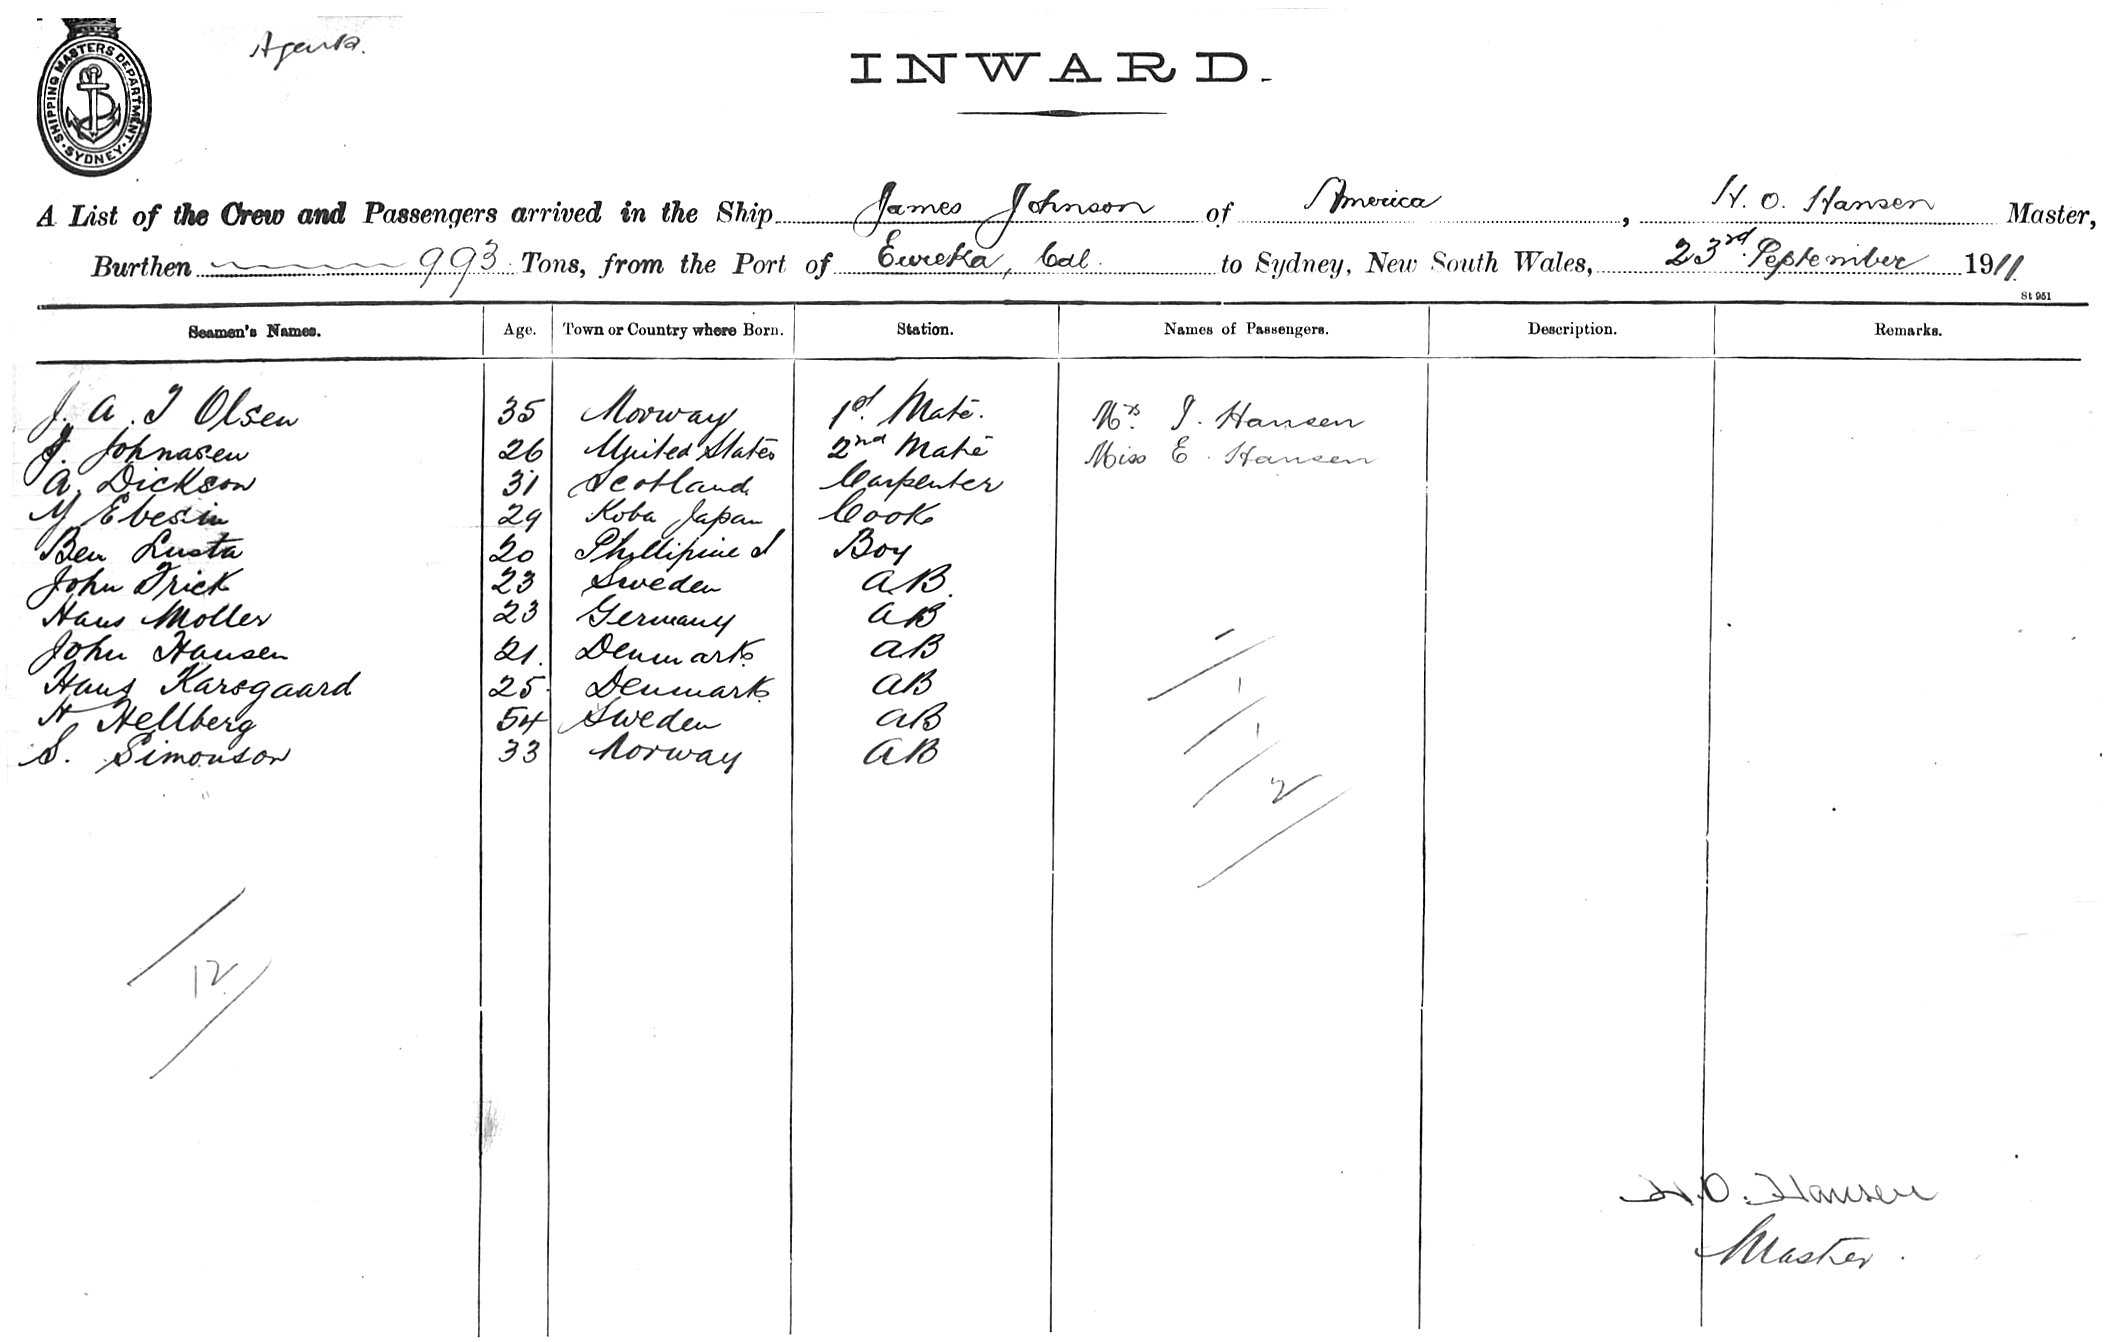 SHIPPING MASTERS DEPARTMENT
SYDNEY
Agents.
INWARD.
A List of the Crew and Passengers arrived in the Ship James Johnson of America, H. O. Hansen Master,
Burthen 993 Tons, from the Port of Eureka, Cal. to Sydney, New South Wales, 23rd September 1911.
St 951
Seamen's Names. Age. Town or Country where Born. Station. Names of Passengers. Description. Remarks.
J. A. T Olsen 35 Norway 1st. Mate. Mrs. I. Hansen
J. Johnasen 26 United States 2nd Mate Miss E. Hansen
A. Dickson 31 Scotland Carpenter
Y Ebesin 29 Koba Japan Cook
Ben Lusta 20 Phillipine I Boy
John Frick 23 Sweden AB.
Hans Moller 23 Germany AB
John Hansen 21. Denmark AB
Hans Karsgaard 25 Denmark AB
H Hellberg 54 Sweden AB
S. Simonson 33 Norway AB
1
1
2
12
H.O. Hansen
Master.